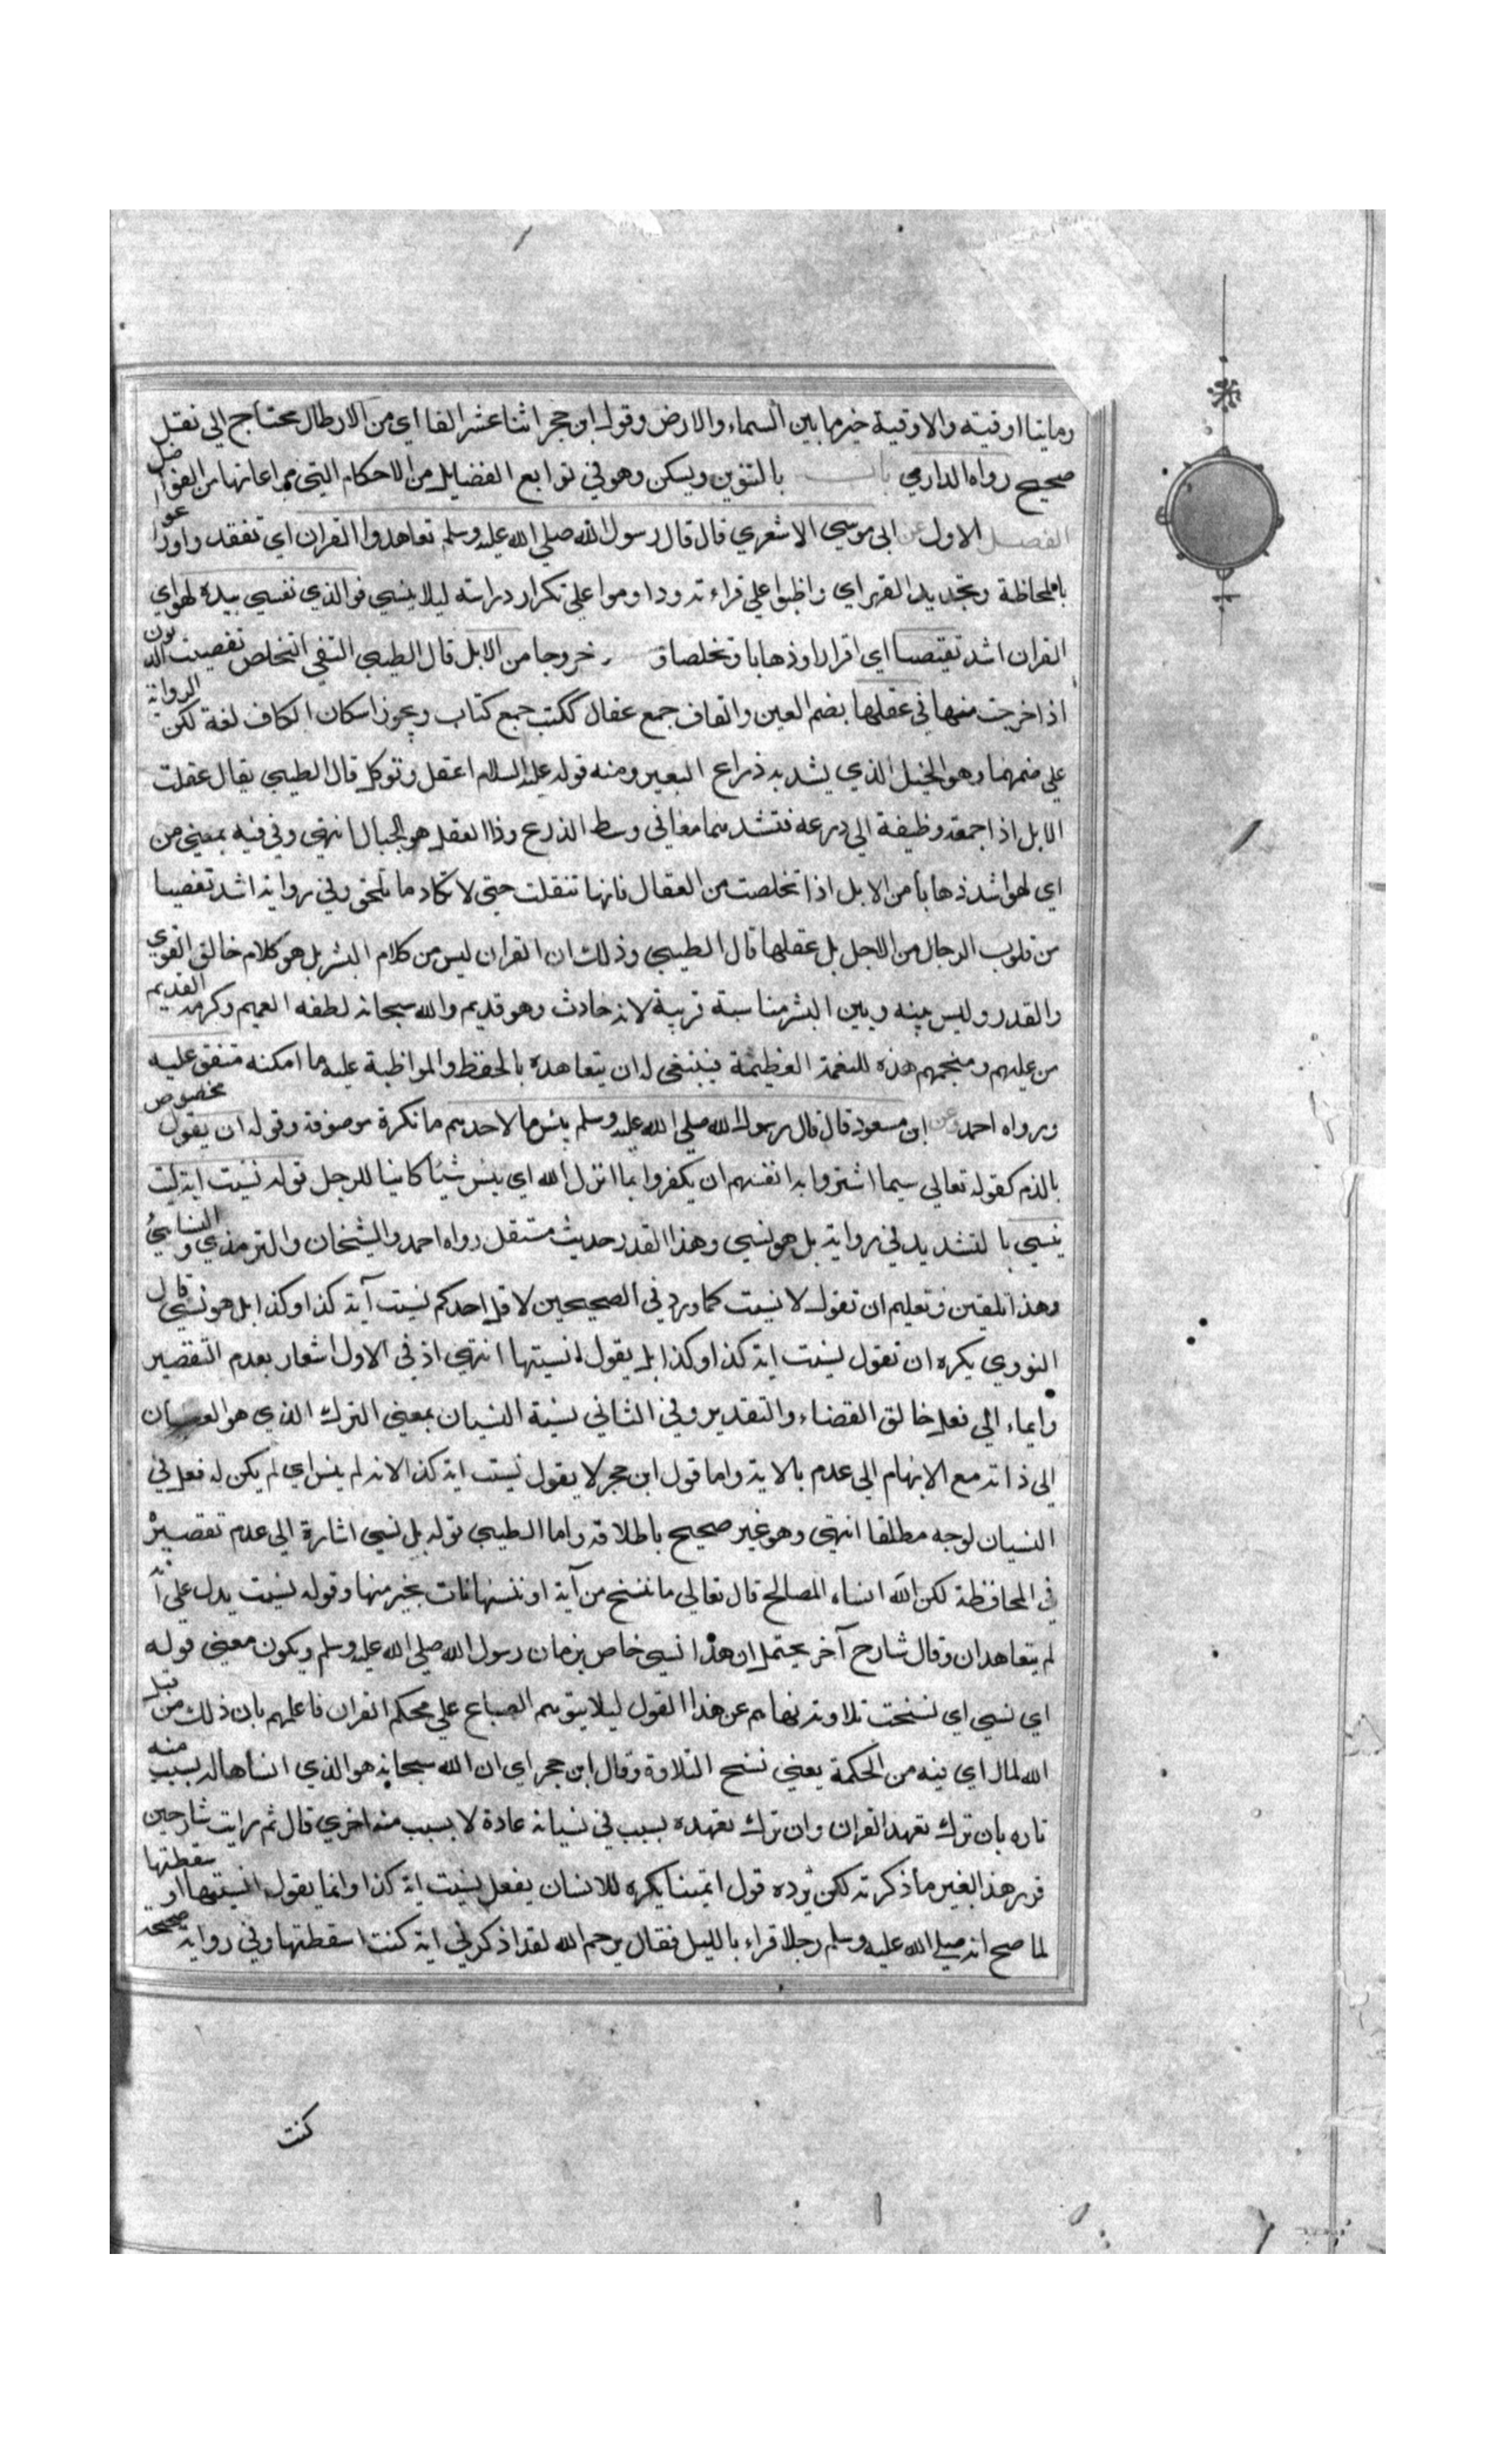 ومايتا اوقية والاوقية خير مما بين السماء والارض وقول ابن حجر اثنا عشر الفا اي من الارطال محتاج الي نقل
صحيح رواه الدارمي باب بالتنوين ويسكن وهو في توابع الفضايل من الاحكام التي مراعاتها من الفواضل
الفصل الاول عن ابي موسي الاشعري قال قال رسول الله صلي الله عليه وسلم تعاهدوا القران اي تفقدوا
بالمحاظة وتجديد العهد اي واظبوا علي قراءته وداوموا علي تكرار دراسته ليلا ينسي فو الذي نفسي بيده لهو اي
القران اشد تفصيا اي اقرارا وذهابا وتخلصا و خروجا من الابل قال الطيبي التفصي التخلص تفصيت الديون
اذا خرجت منها في عقلها بضم العين والقاف جمع عقال ككتب جمع كتاب ويجوز اسكان الكاف لغة لكن الرواية
علي ضمهما وهو الحبل الذي يشد به ذراع البعير ومنه قوله عليه السلام اعقل وتوكل قال الطيبي يقال عقلت
الابل اذا جمعت وظيفة الي ذرعه فتشدهما معا في وسط الذرع وذا العقل هو الحبال انتهي وفي فيه بمعني من
اي لهو اشد ذهابا من الابل اذا تخلصت من العقال فانها تنفلت حتي لا تكاد ما تلحق وفي رواية اشد تفصيا
من قلوب الرجال من الابل بل عقلها قال الطيبي وذلك ان القران ليس من كلام البشر بل هو كلام خالق القوي
والقدر وليس بينه وبين البشر مناسبة قريبة لانه حادث وهو قديم والله سبحانه لطفه العميم وكرمه القديم
من عليهم ومنحهم هذه النعمة العظيمة فينبغي له ان يتعاهده بالحفظ والمواظبة عليه ما امكنه متفق عليه
ورواه احمد وعن ابن مسعود قال قال رسول الله صلي الله عليه وسلم بئس ما لاحدهم ما نكرة موصوفة وقوله ان يقول مخصوص
بالذم كقوله تعالي بيسما اشتروا به انفسهم ان يكفروا بما انزل الله اي بئس شيئا كاينا للرجل قوله نسيت اية كيت
ينسي بالتشديد في رواية بل هو نسي وهذا القدر حديث مستقل رواه احمد والشيخان والترمذي والنسايئ
وهذا تلقين وتعليم ان تقول لا نسيت كما ورد في الصحيحين لا قل احدكم نسيت آية كذا وكذا بل هو نسي قال
النووي يكره ان تقول نسيت اية كذا وكذا بل يقول انسيتها انتهي اذ في الاول اشعار بعدم التقصير
وايماء الي فعل خالق القضاء والتقدير وفي الثاني نسبة النسيان بمعني الترك الذي هو العصيان
الي ذاته مع الابهام الي عدم بالاية واما قول ابن حجر لا يقول نسيت اية كذا لانه لم ينس اي لم يكن له فعل في
النسيان لوجه مطلقا انتهي وهو غير صحيح باطلاقه واما الطيبي قوله بل نسي اشارة الي عدم تقصيره
في المحافظة لكن الله انساه المصالح قال تعالي ما ننسخ من آية او ننسها نات بخير منها وقوله نسيت يدل علي انه
لم يتعاهد ان وقال شارح آخر يحتمل ان هذا نسي خاص بزمان رسول الله صلي الله عليه وسلم ويكون معني قوله
اي نسي اي نسخت تلاوته نهاهم عن هذا القول ليلا يتوهم الضياع علي محكم القران فاعلمهم بان ذلك من قبل
الله لما راي فيه من الحكمة يعني نسخ التلاوة وقال ابن حجر اي ان الله سبحانه هو الذي انساها له بسبب منه
تاره بان ترك تعهد القران وان ترك تعهده بسبب في نسيانه عادة لا بسبب منه اخري قال ثم رايت شارحين
قرر هذا الغير ما ذكرته لكن ترده قول ائمتنا يكره للانسان يفعل نسيت اية كذا وانما يقول انسيتها او سقطتها
لما صح انه صلي الله عليه وسلم رجلا قراء بالليل فقال يرحم الله لقد اذكرني اية كنت اسقطتها وفي رواية صحيحه
كنت